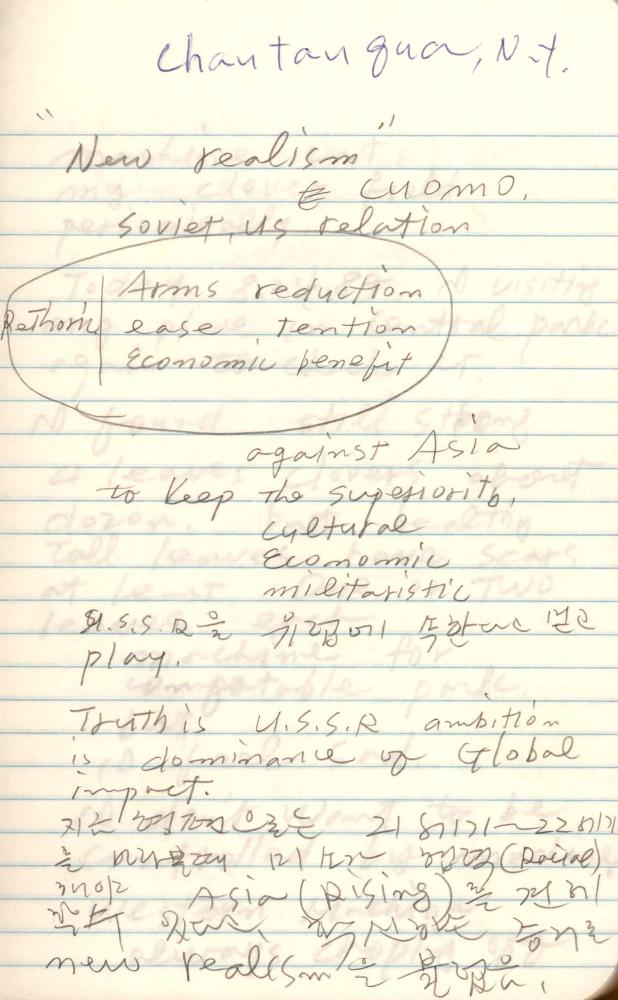 Chautauqua, N.Y.
"New realism"
CUOMO.
Soviet, US relation
Arms reduction
Rethoric ease tention
Economic benefit
against Asia
to keep the superiority,
cultural
Economic
militaristic
U.S.S.R을 유럽에 속한다고 믿고
play.
Truth is U.S.S.R ambition
is dominance of Global
impact.
21 세기~22세기
를 바라볼때 미 소가 협력 (Racial)
해야 Asia (Rising)를 견제
할수 있다는
new realism을